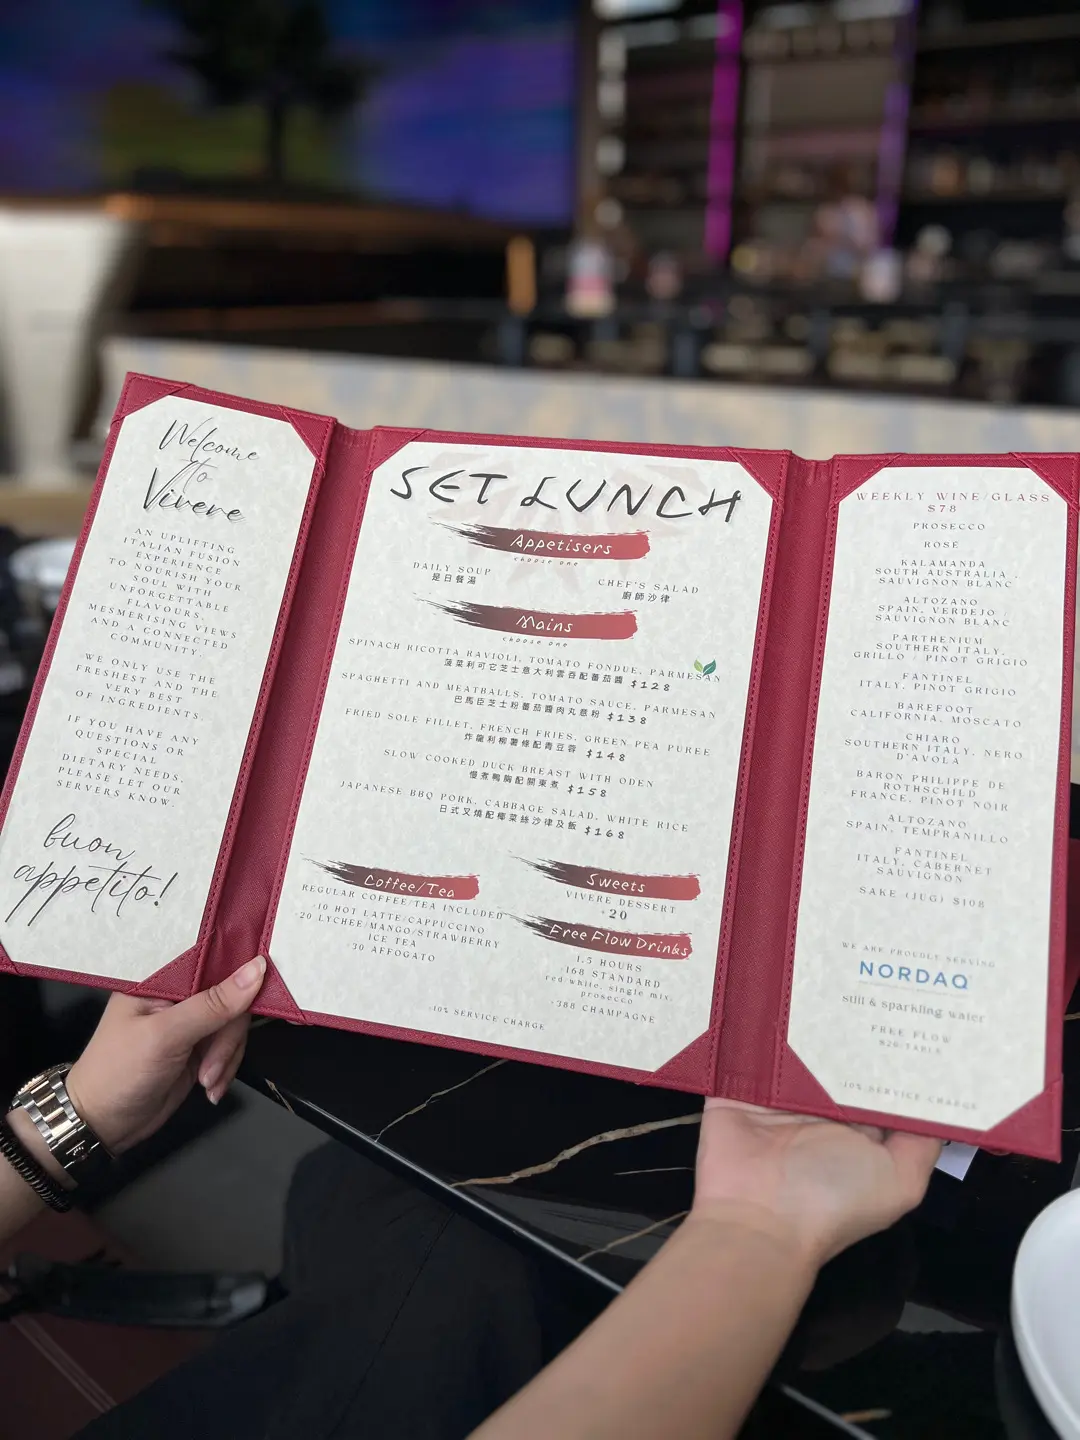 Welcome
to
Vivere
AN UPLIFTING
ITALIAN FUSION
EXPERIENCE
TO NOURISH YOUR
SOUL WITH
UNFORGETTABLE
FLAVOURS,
MESMERISING VIEWS
AND A CONNECTED
COMMUNITY.
WE ONLY USE THE
FRESHEST AND THE
VERY BEST
OF INGREDIENTS.
IF YOU HAVE ANY
QUESTIONS OR
SPECIAL
DIETARY NEEDS,
PLEASE LET OUR
SERVERS KNOW.
buon
appetito!
SET LUNCH
Appetisers
choose one
DAILY SOUP
是日餐湯
CHEF'S SALAD
廚師沙律
Mains
choose one
SPINACH RICOTTA RAVIOLI, TOMATO FONDUE, PARMESAN
菠菜利可它芝士意大利雲吞配蕃茄醬 $128
SPAGHETTI AND MEATBALLS, TOMATO SAUCE, PARMESAN
巴馬臣芝士粉蕃茄醬肉丸意粉 $138
FRIED SOLE FILLET, FRENCH FRIES, GREEN PEA PUREE
炸龍利柳薯條配青豆蓉 $148
SLOW COOKED DUCK BREAST WITH ODEN
慢煮鴨胸配關東煮 $158
JAPANESE BBQ PORK, CABBAGE SALAD, WHITE RICE
日式叉燒配椰菜絲沙律及飯 $168
Coffee/Tea
REGULAR COFFEE/TEA INCLUDED
+10 HOT LATTE/CAPPUCCINO
+20 LYCHEE/MANGO/STRAWBERRY
ICE TEA
+30 AFFOGATO
Sweets
VIVERE DESSERT
+20
Free Flow Drinks
1.5 HOURS
+168 STANDARD
red white, single mix,
prosecco
+388 CHAMPAGNE
+10% SERVICE CHARGE
WEEKLY WINE/GLASS
$78
PROSECCO
ROSÉ
KALAMANDA
SOUTH AUSTRALIA,
SAUVIGNON BLANC
ALTOZANO
SPAIN, VERDEJO /
SAUVIGNON BLANC
PARTHENIUM
SOUTHERN ITALY,
GRILLO / PINOT GRIGIO
FANTINEL
ITALY, PINOT GRIGIO
BAREFOOT
CALIFORNIA, MOSCATO
CHIARO
SOUTHERN ITALY, NERO
D'AVOLA
BARON PHILIPPE DE
ROTHSCHILD
FRANCE, PINOT NOIR
ALTOZANO
SPAIN, TEMPRANILLO
FANTINEL
ITALY, CABERNET
SAUVIGNON
SAKE (JUG) $108
WE ARE PROUDLY SERVING
NORDAQ
still & sparkling water
FREE FLOW
+10% SERVICE CHARGE